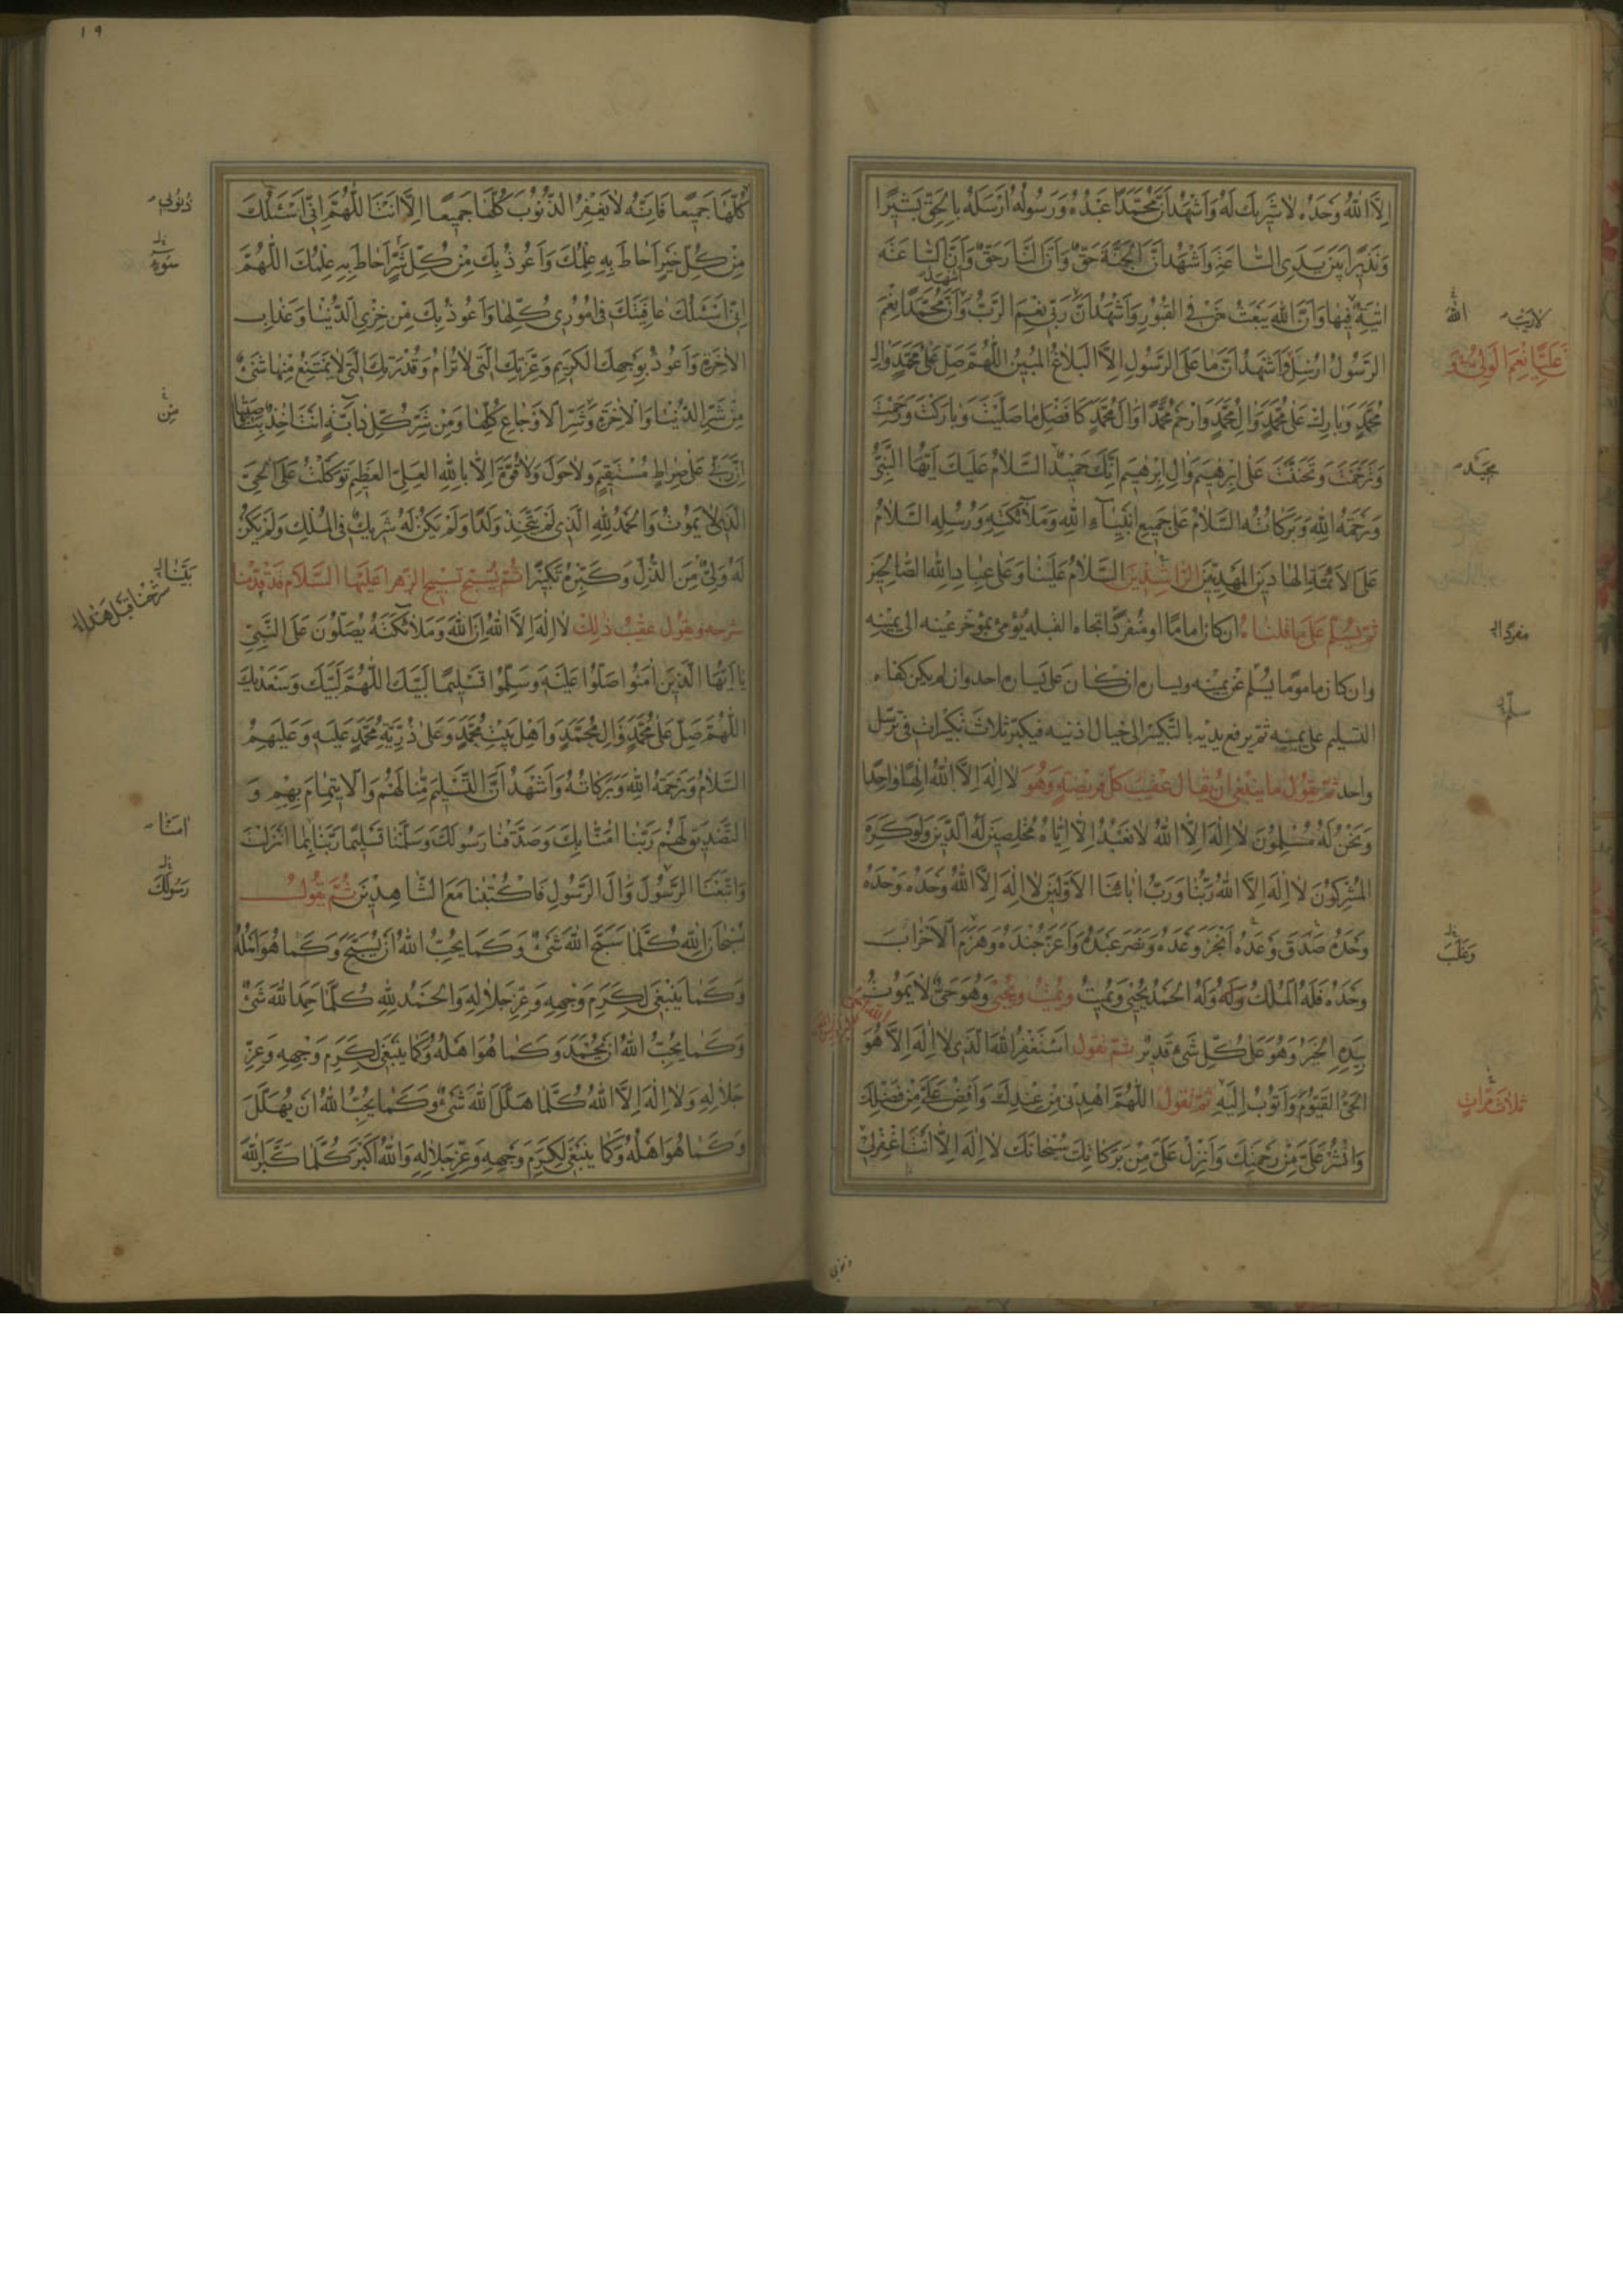 اِلاَّ اللهُ وَحْدَهُ لاٰ شَرِيكَ لَهُ وَاَشْهَدُ اَنَّ مُحَمَّدًا عَبْدُهُ وَرَسُولُهُ اَرْسَلَهُ بِالْحَقِّ بَشِيرًا
وَنَذِيرًا بَيْنَ يَدَيِ السّٰاعَةِ وَاَشْهَدُ اَنَّ الْجَنَّةَ حَقٌّ وَاَنَّ النّٰارَ حَقٌّ وَاَنَّ السّٰاعَةَ
اٰتِيَةٌ فِيهٰا وَاَنَّ اللهَ يَبْعَثُ مَنْ فِي الْقُبُورِ وَاَشْهَدُ اَنَّ رَبِّي نِعْمَ الرَّبُّ وَاَنَّ مُحَمَّدًا نِعْمَ
اَشْهَدُ
لاٰرَيْبَ
الله
الرَّسُولُ اُرْسِلَ وَاَشْهَدُ اَنَّ مٰا عَلَى الرَّسُولِ اِلاَّ الْبَلاٰغُ الْمُبِينُ اَللّٰهُمَّ صَلِّ عَلٰى مُحَمَّدٍ وَاٰلِ
عَلِيًّا نِعْمَ الْوَلِيُّ وَ
مُحَمَّدٍ وَبٰارِكْ عَلٰى مُحَمَّدٍ وَاٰلِ مُحَمَّدٍ وَارْحَمْ مُحَمَّدًا وَاٰلَ مُحَمَّدٍ كَاَفْضَلِ مٰا صَلَّيْتَ وَبٰارَكْتَ وَرَحِمْتَ
وَتَرَحَّمْتَ وَتَحَنَّنْتَ عَلٰى اِبْرٰهِيمَ وَاٰلِ اِبْرٰهِيمَ اِنَّكَ حَمِيدٌ السَّلاٰمُ عَلَيْكَ اَيُّهَا النَّبِيُّ
مَجِيدٌ
وَرَحْمَةُ اللهِ وَبَرَكٰاتُهُ السَّلاٰمُ عَلٰى جَمِيعِ اَنْبِيٰآءِ اللهِ وَمَلاٰئِكَتِهِ وَرُسُلِهِ السَّلاٰمُ
عَلَى الاَئِمَّةِ الْهٰادِينَ الْمَهْدِيِّينَ الرّٰاشِدِينَ السَّلاٰمُ عَلَيْنٰا وَعَلٰى عِبٰادِ اللهِ الصّٰالِحِينَ
ثُمَّ يُسَلِّمُ عَلٰى مٰا قُلْنٰاهُ ان كان اماما او منفردًا تجاه القبله يؤمئ بمؤخر عينه الى يمينه
مفردًا
وان كان مامومًا يسلّم عن يمينه ويساره ان كان على يساره احد وان لم يكن كفاه
التسليم على يمينه ثم يرفع يديه بالتكبير الى حيال اذنيه فيكبر ثلاث تكبيرات في ترسّل
سلّم
واحد ثُمَّ يَقُولُ مٰا يَنْبَغِي اَنْ يُقٰالَ عَقِيبَ كُلِّ فَرِيضَةٍ وَهُوَ لاٰ اِلٰهَ اِلاَّ اللهُ اِلٰهًا وٰاحِدًا
وَنَحْنُ لَهُ مُسْلِمُونَ لاٰ اِلٰهَ اِلاَّ اللهُ لاٰ نَعْبُدُ اِلاّٰ اِيّٰاهُ مُخْلِصِينَ لَهُ الدِّينَ وَلَوْ كَرِهَ
الْمُشْرِكُونَ لاٰ اِلٰهَ اِلاَّ اللهُ رَبُّنٰا وَرَبُّ اٰبٰائِنَا الاَوَّلِينَ لاٰ اِلٰهَ اِلاَّ اللهُ وَحْدَهُ وَحْدَهُ
وَحْدَهُ صَدَقَ وَعْدَهُ اَنْجَزَ وَعْدَهُ وَنَصَرَ عَبْدَهُ وَاَعَزَّ جُنْدَهُ وَهَزَمَ الاَحْزٰابَ
وَغَلَبَ
وَحْدَهُ فَلَهُ الْمُلْكُ وَلَهُ الْحَمْدُ يُحْيِي وَيُمِيتُ وَيُمِيتُ وَيُحْيِي وَهُوَ حَيٌّ لاٰ يَمُوتُ
بِيَدِهِ الْخَيْرُ وَهُوَ عَلٰى كُلِّ شَيْءٍ قَدِيرٌ ثُمَّ تَقُولُ اَسْتَغْفِرُ اللهَ الَّذِي لاٰ اِلٰهَ اِلاّٰ هُوَ
الْحَيُّ الْقَيُّومُ وَاَتُوبُ اِلَيْهِ ثُمَّ تَقُولُ اَللّٰهُمَّ اهْدِنِي مِنْ عِنْدِكَ وَاَفِضْ عَلَيَّ مِنْ فَضْلِكَ
ثَلاٰثَ مَرّٰاتٍ
وَانْشُرْ عَلَيَّ مِنْ رَحْمَتِكَ وَاَنْزِلْ عَلَيَّ مِنْ بَرَكٰاتِكَ سُبْحٰانَكَ لاٰ اِلٰهَ اِلاّٰ اَنْتَ اغْفِرْ لِي
ذنوبي
١٩
كُلَّهٰا جَمِيعًا فَاِنَّهُ لاٰ يَغْفِرُ الذُّنُوبَ كُلَّهٰا جَمِيعًا اِلاّٰ اَنْتَ اَللّٰهُمَّ اِنِّي اَسْئَلُكَ
ذُنُوبِي
مِنْ كُلِّ خَيْرٍ اَحٰاطَ بِهِ عِلْمُكَ وَاَعُوذُ بِكَ مِنْ كُلِّ شَرٍّ اَحٰاطَ بِهِ عِلْمُكَ اَللّٰهُمَّ
اِنِّي اَسْئَلُكَ عٰافِيَتَكَ فِي اُمُورِي كُلِّهٰا وَاَعُوذُ بِكَ مِنْ خِزْيِ الدُّنْيٰا وَعَذٰابِ
الاٰخِرَةِ وَاَعُوذُ بِوَجْهِكَ الْكَرِيمِ وَعِزَّتِكَ الَّتِي لاٰ تُرٰامُ وَقُدْرَتِكَ الَّتِي لاٰ يَمْتَنِعُ مِنْهٰا شَيْءٌ
مِنْ شَرِّ الدُّنْيٰا وَالاٰخِرَةِ وَشَرِّ الاَوْجٰاعِ كُلِّهٰا وَمِنْ شَرِّ كُلِّ دٰابَّةٍ اَنْتَ اٰخِذٌ بِنٰاصِيَتِهٰا
مِنْ
اِنَّ رَبِّي عَلٰى صِرٰاطٍ مُسْتَقِيمٍ وَلاٰ حَوْلَ وَلاٰ قُوَّةَ اِلاّٰ بِاللهِ الْعَلِيِّ الْعَظِيمِ تَوَكَّلْتُ عَلَى الْحَيِّ
الَّذِي لاٰ يَمُوتُ وَالْحَمْدُ لِلّٰهِ الَّذِي لَمْ يَتَّخِذْ وَلَدًا وَلَمْ يَكُنْ لَهُ شَرِيكٌ فِي الْمُلْكِ وَلَمْ يَكُنْ
لَهُ وَلِيٌّ مِنَ الذُّلِّ وَكَبِّرْهُ تَكْبِيرًا ثُمَّ يُسَبِّحُ تَسْبِيحَ الزَّهْرٰا عَلَيْهَا السَّلاٰمُ فَقَدْ قَدَّمْنٰا
بَيَّنّٰا
شَرَحْنٰا قَبْلَ هٰذٰا
شرحه وَيَقُولُ عَقِيبَ ذٰلِكَ لاٰ اِلٰهَ اِلاَّ اللهُ اِنَّ اللهَ وَمَلاٰئِكَتَهُ يُصَلُّونَ عَلَى النَّبِيِّ
يٰا اَيُّهَا الَّذِينَ اٰمَنُوا صَلُّوا عَلَيْهِ وَسَلِّمُوا تَسْلِيمًا لَبَّيْكَ اَللّٰهُمَّ لَبَّيْكَ وَسَعْدَيْكَ
اَللّٰهُمَّ صَلِّ عَلٰى مُحَمَّدٍ وَاٰلِ مُحَمَّدٍ وَاَهْلِ بَيْتِ مُحَمَّدٍ وَعَلٰى ذُرِّيَّةِ مُحَمَّدٍ عَلَيْهِ وَعَلَيْهِمُ
السَّلاٰمُ وَرَحْمَةُ اللهِ وَبَرَكٰاتُهُ وَاَشْهَدُ اَنَّ التَّسْلِيمَ مِنّٰا لَهُمْ وَالاِيتِمٰامَ بِهِمْ وَ
التَّصْدِيقَ لَهُمْ رَبَّنٰا اٰمَنّٰا بِكَ وَصَدَّقْنٰا رَسُولَكَ وَسَلَّمْنٰا تَسْلِيمًا رَبَّنٰا بِمٰا اَنْزَلْتَ
اٰمَنّٰا
وَاتَّبَعْنَا الرَّسُولَ وَاٰلَ الرَّسُولِ فَاكْتُبْنٰا مَعَ الشّٰاهِدِينَ ثُمَّ يَقُولُ
رَسُولَكَ
سُبْحٰانَ اللهِ كُلَّمٰا سَبَّحَ اللهَ شَيْءٌ وَكَمٰا يُحِبُّ اللهُ اَنْ يُسَبَّحَ وَكَمٰا هُوَ اَهْلُهُ
وَكَمٰا يَنْبَغِي لِكَرَمِ وَجْهِهِ وَعِزِّ جَلاٰلِهِ وَالْحَمْدُ لِلّٰهِ كُلَّمٰا حَمِدَ اللهَ شَيْءٌ
وَكَمٰا يُحِبُّ اللهُ اَنْ يُحْمَدَ وَكَمٰا هُوَ اَهْلُهُ وَكَمٰا يَنْبَغِي لِكَرَمِ وَجْهِهِ وَعِزِّ
جَلاٰلِهِ وَلاٰ اِلٰهَ اِلاَّ اللهُ كُلَّمٰا هَلَّلَ اللهَ شَيْءٌ وَكَمٰا يُحِبُّ اللهُ اَنْ يُهَلَّلَ
وَكَمٰا هُوَ اَهْلُهُ وَكَمٰا يَنْبَغِي لِكَرَمِ وَجْهِهِ وَعِزِّ جَلاٰلِهِ وَاللهُ اَكْبَرُ كُلَّمٰا كَبَّرَ اللهَ